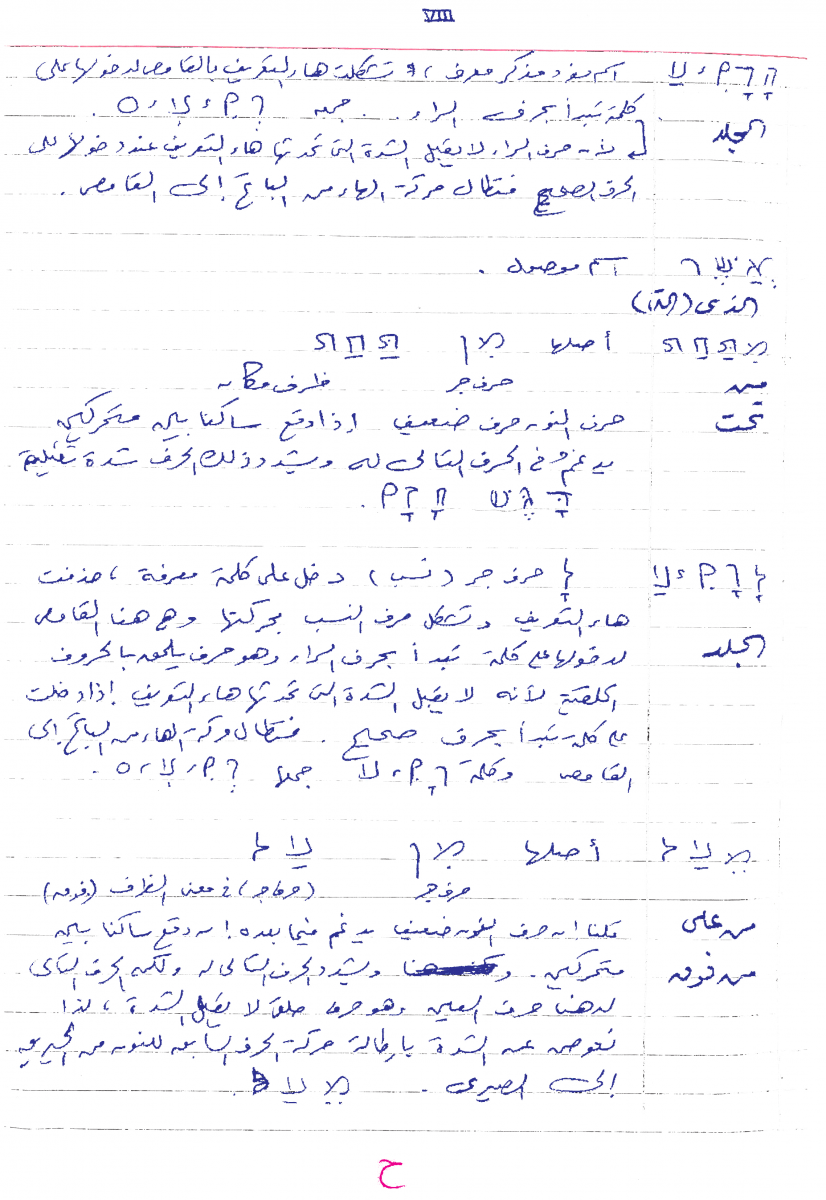 VIII
הָרָקִיעַ اسم مفرد مذكر معرف، و تشكلت هاء التعريف بالقامص لدخولها على
الجلد كلمة تبدأ بحرف الراء. جمعه רְקִיעִים.
لأن حرف الراء لا يقبل الشدة التى تحدثها هاء التعريف عند دخولها على
الحرف الصحيح فتطال حركة الهاء من الباتح إلى القامص.
אֲשֶׁר اسم موصول.
الذى (التى)
מִתַּחַת أصلها מִן תַּחַת
من حرف جر ظرف مكان
تحت حرف النون حرف ضعيف إذا وقع ساكنا بين متحركين
يدغم فى الحرف التالى له ويشدد ذلك الحرف شدة ثقيلة
דָּגֵשׁ חָזָק.
לָרָקִיעַ לָ حرف جر (نسب) دخل على كلمة معرفة، حذفت
هاء التعريف وتشكل حرف النسب بحركتها وهى هنا القامص
الجلد لدخولها على كلمة تبدأ بحرف الراء وهو حرف يلحق بالحروف
الحلقية لأنه لا يقبل الشدة التى تحدثها هاء التعريف إذا دخلت
على كلمة تبدأ بحرف صحيح. فتطال حركة الهاء من الباتح إلى
القامص وكلمة רָקִיעַ جمعها רְקִיעִים.
מֵעַל أصلها מִן עַל
حرف جر (حرف جر) فى معنى الظرف (فوق)
من على قلنا ان حرف النون ضعيف يدغم فيما بعده إن وقع ساكنا بين
من فوق متحركين. ويشدد الحرف التالى له ولكن الحرف التالى
له هنا حرف العين وهو حرف حلقى لا يقبل الشدة، لذا
نعوض عن الشدة بإطالة حركة الحرف السابق للنون من الحيريق
إلى الصيرى. מֵעַל.
ح